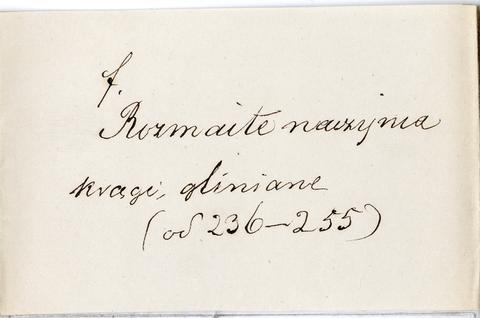 f.
Rozmaite naczynia
kręgi, gliniane
(od 236-255)